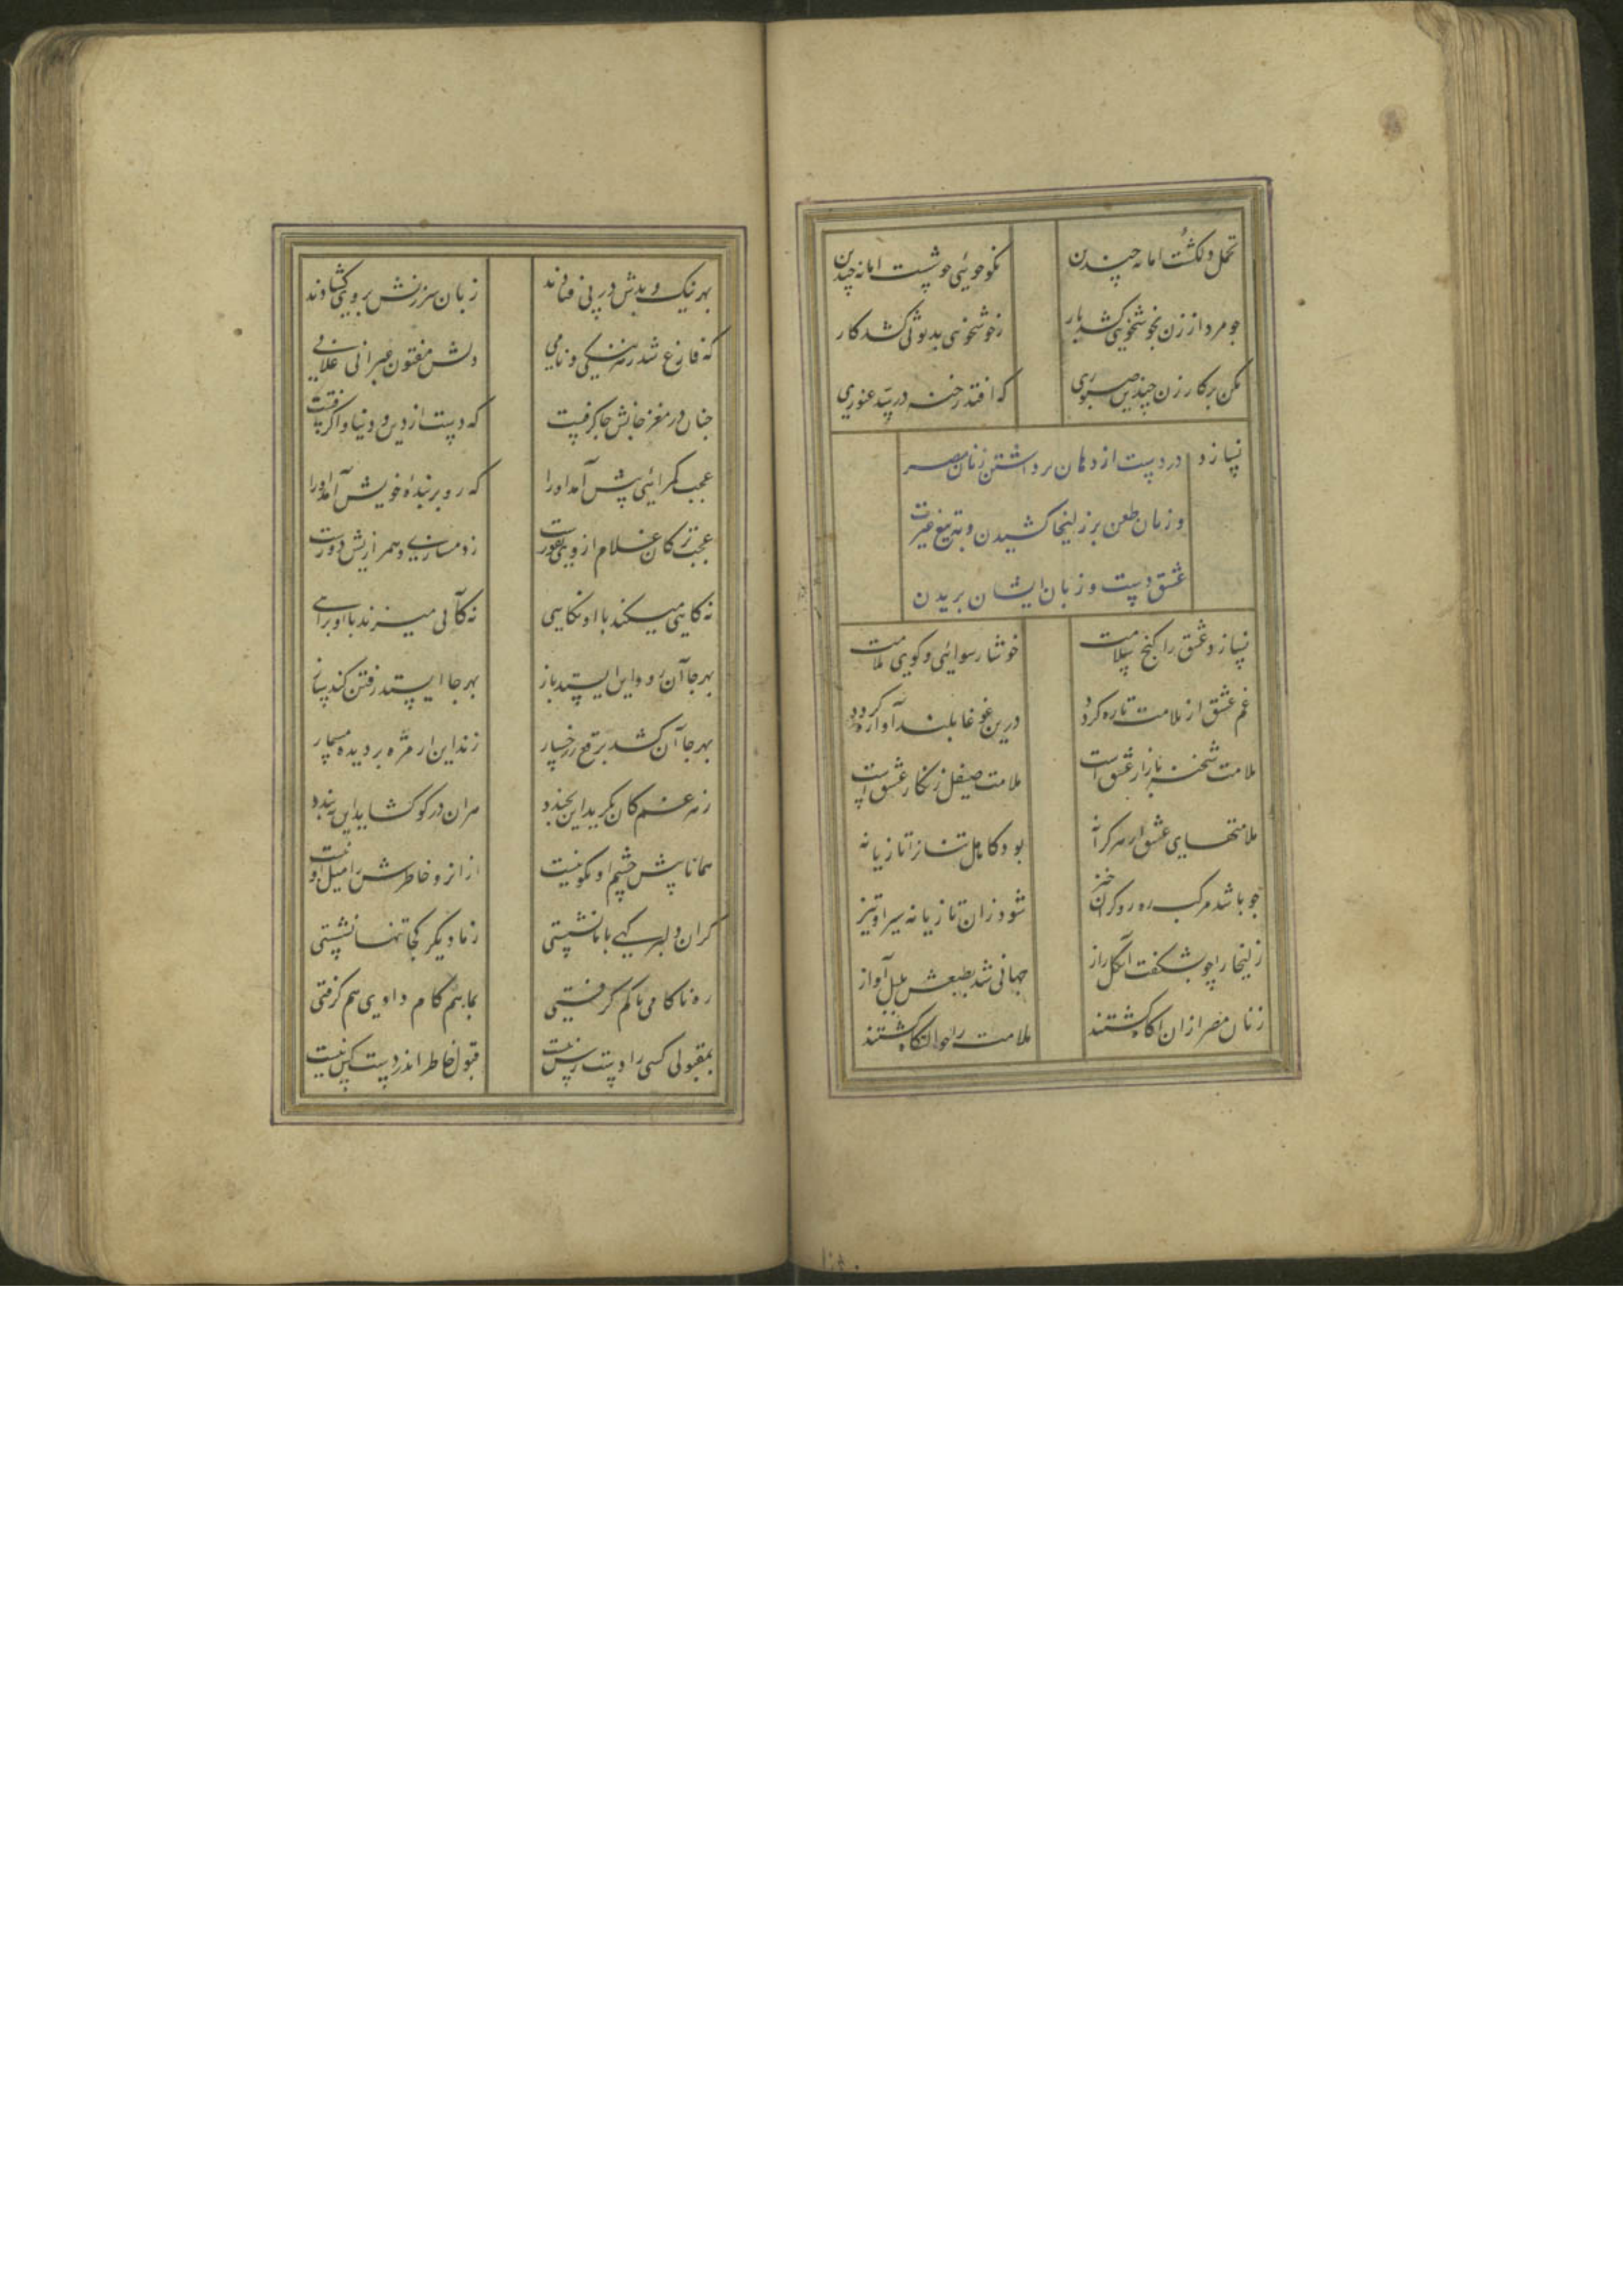 تحمل دلکشست اما نه چندین نکو خوئی خوشست اما نه چندین
چو مرد از زن بخوشخویی کشد بار زخوشخویی ببدروئی کشد کار
مکن بر کار زن چندین صبوری که افتد رخنه در سد غیوری
نسازد در دست از دهان برداشتن زنان مصر
و زبان طعن بر زلیخا کشیدن و بتیغ غیرت
عشق دست و زبان ایشان بریدن
نسازد عشق را کنج سلامت خوشا رسوائی و کوی ملامت
غم عشق از ملامت تازه گردد درین غوغا بلند آوازه گردد
ملامت شحنه بازار عشق است ملامت صیقل زنگار عشق است
ملامتهای عشق از هر کرانه بود کاهل تنانرا تازیانه
چو باشد مرکب ره رو گران خیز شود زان تازیانه سیر او تیز
زلیخا را چو بشکفت آن گل راز جهانی شد بطعنش بلبل آواز
زنان مصر ازان آگاه گشتند ملامت را حوالتگاه گشتند
بهر نیک و بدش در پی فتادند زبان سرزنش بر وی گشادند
که فارغ شد ز هر ننگی و نامی دلش مفتون عبرانی غلامی
چنان در مغز جانش جا گرفتست که دست از دین و دنیا وا گرفتست
عجب گمراهئی پیش آمد او را که رو بر بنده خویش آمد او را
عجب تر کان غلام از وی نفورست ز دمسازی و همرازیش دورست
نه گاهی میکند با او نگاهی نه گامی میزند با او براهی
بهر جا آن رود این ایستد باز بهر جا ایستد رفتن کند ساز
بهر جا آن کشد برقع ز رخسار زند این از مژه بر دیده مسمار
ز هر غم کان بگرید این بخندد هر آن در کو گشاید این ببندد
همانا پیش چشم او نکو نیست ازانرو خاطرش را میل او نیست
گر آن دلبر گهی با ما نشستی ز ما دیگر کجا تنها نشستی
ره ناکامی ما کم گرفتی بما هم کام دادی هم گرفتی
بمقبولی کسی را دست رس نیست قبول خاطر اندر دست کس نیست